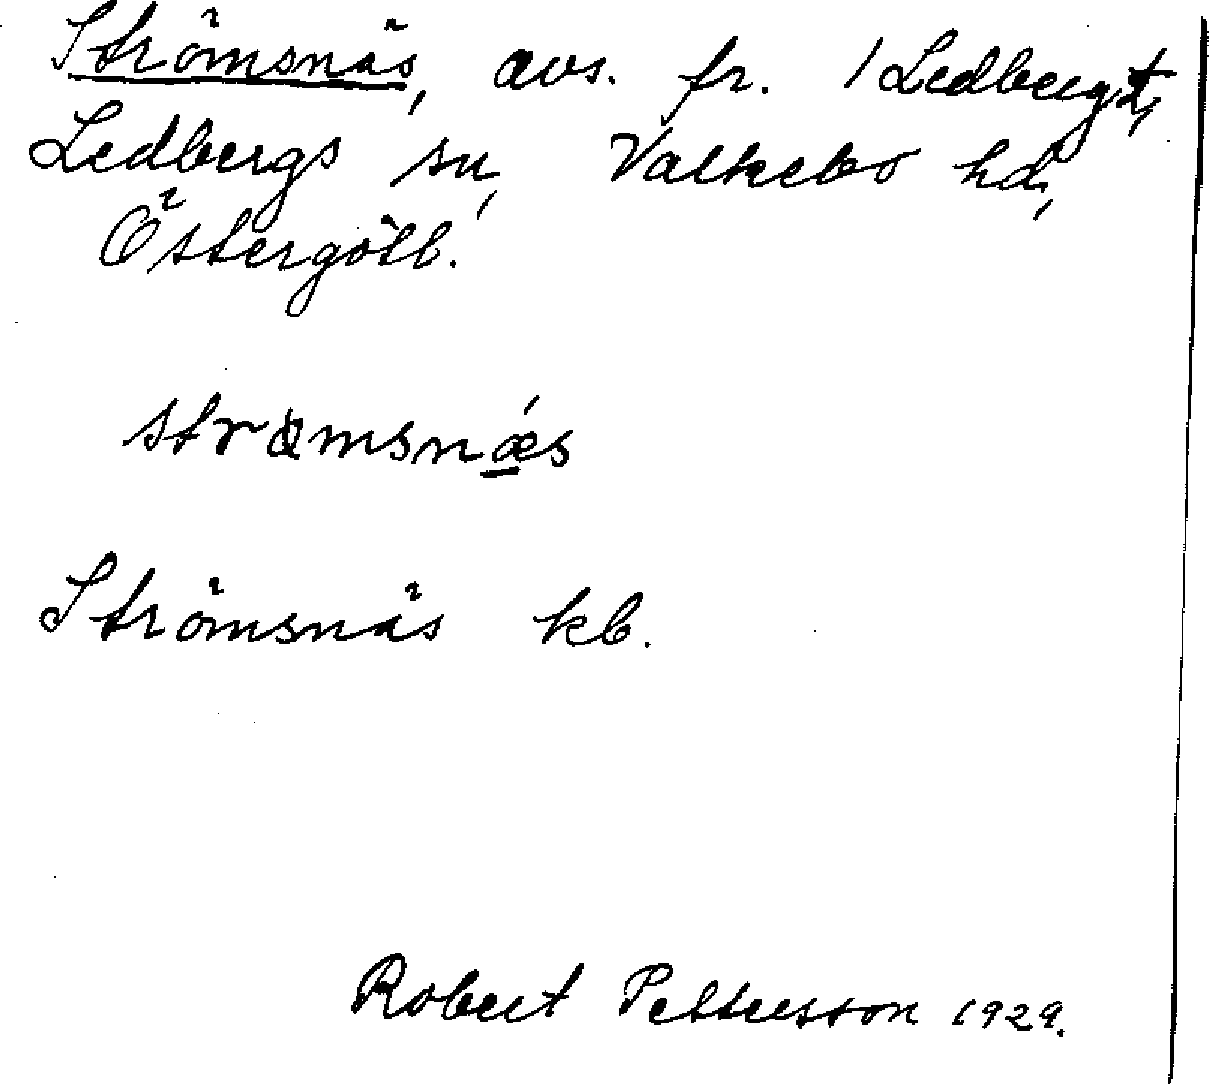 Strömsnäs, avs. fr. 1 Ledberg,
Ledbergs sn, Valkebo hd,
Östergötl.
strömsnǽs
Strömsnäs kb.
Robert Pettersson 1929.